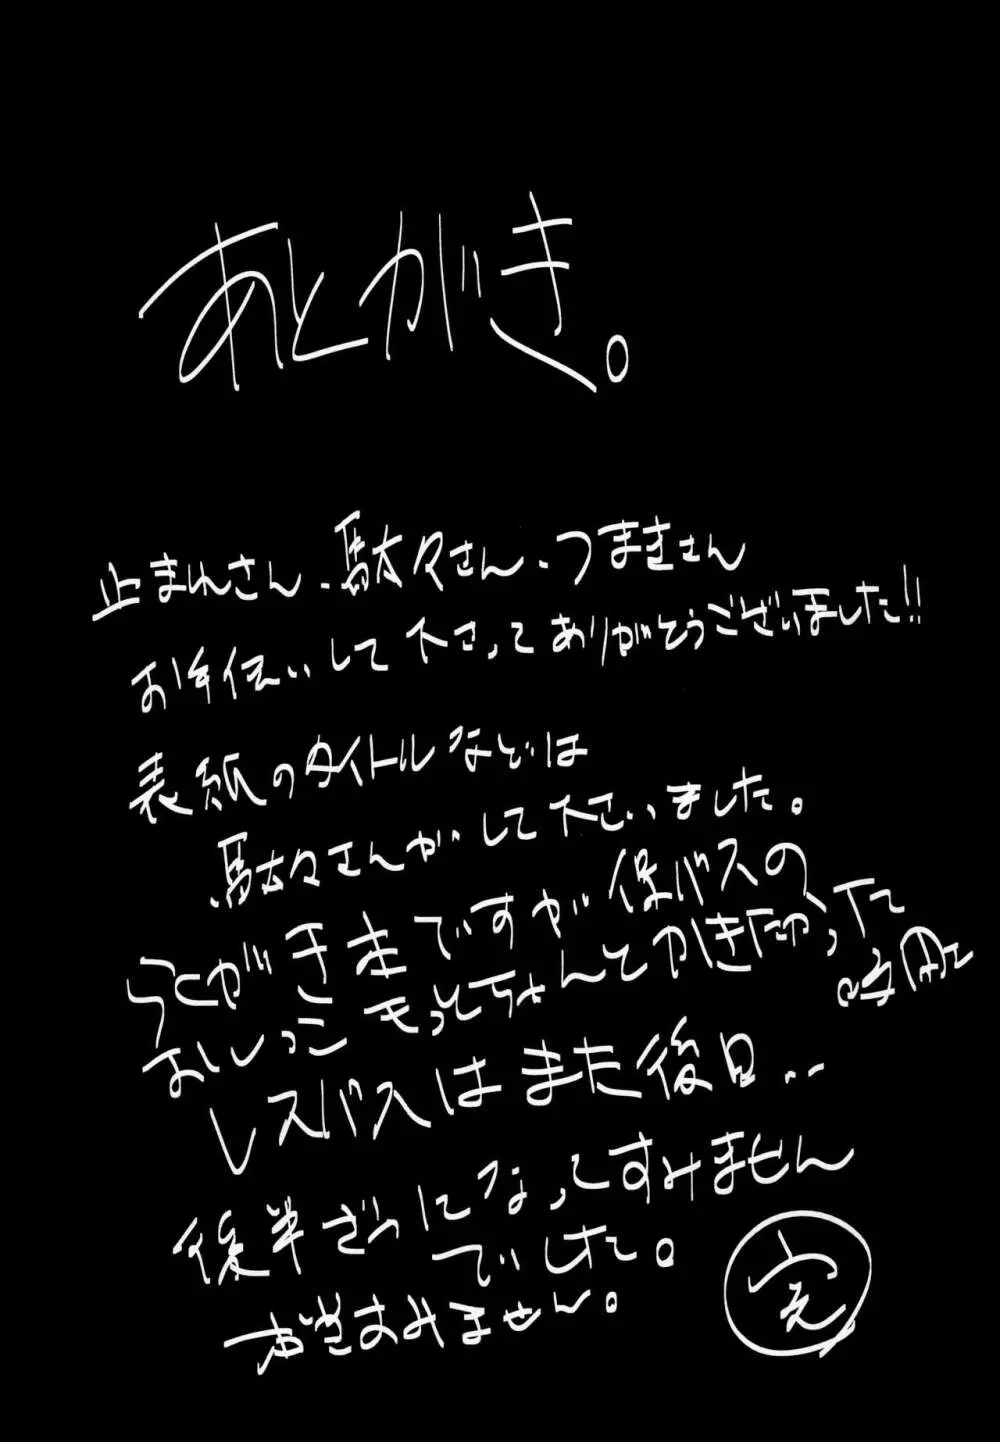 あとがき。
止まれさん、駄々さん、つまきさん
お手伝いして下さってありがとうございました!!
表紙のタイトルなどは
駄々さんがして下さいました。
らくがき本ですが保バスの
おしっこもっとちゃんとかきたかった
時間に
レズバスはまた後日..
後半ざつになってすみません
でした。
本当すみません。
完